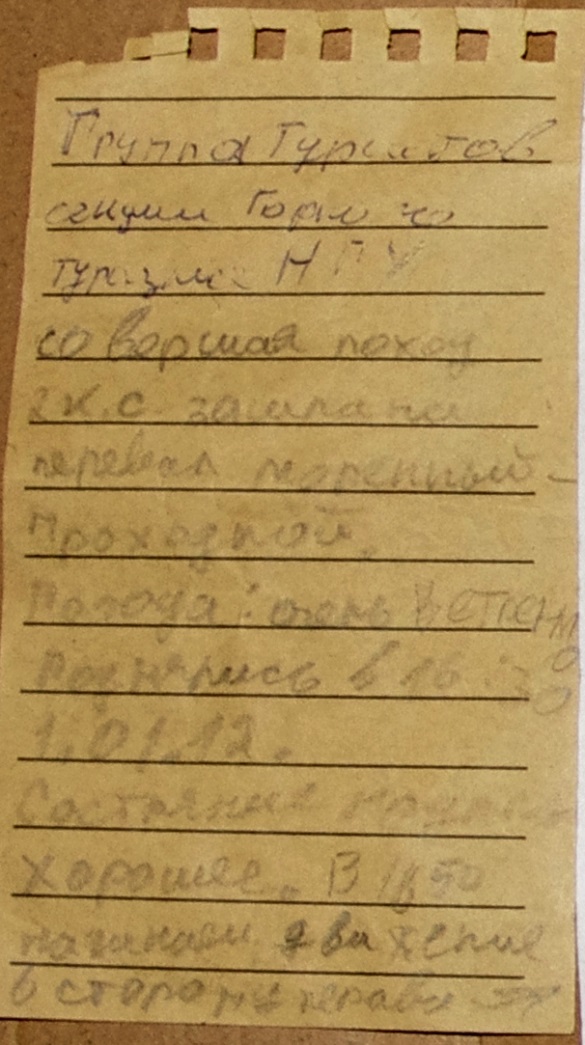 Группа Туристов
секции Горного
туризма НГУ
совершая поход
2 к.с. зашла на
перевал моренный -
Проходной.
Погода: очень Ветренно
Поднялись в 16:30
1.01.12.
Состояние группы
Хорошее. В 16 50
начинаем движение
в сторону